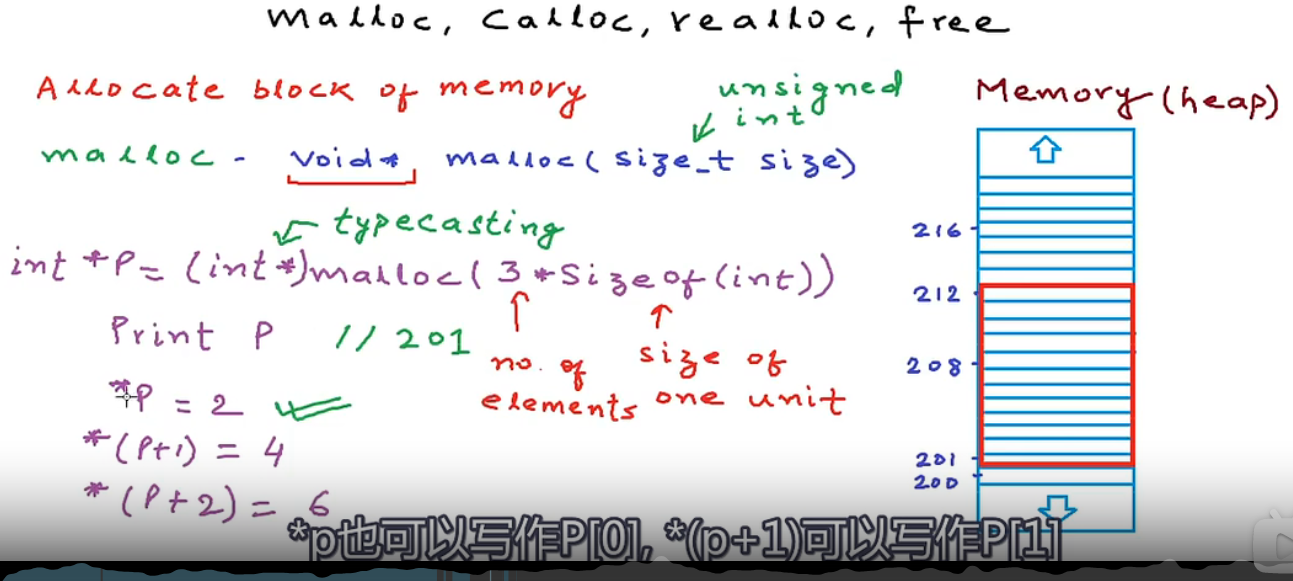 malloc, calloc, realloc, free
Allocate block of memory
unsigned
int
malloc - void* malloc(size_t size)
typecasting
int *P = (int*)malloc(3*sizeof(int))
Print P // 201
no. of
elements
size of
one unit
*P = 2
*(P+1) = 4
*(P+2) = 6
Memory (heap)
216
212
208
201
200
*p也可以写作P[0], *(p+1)可以写作P[1]